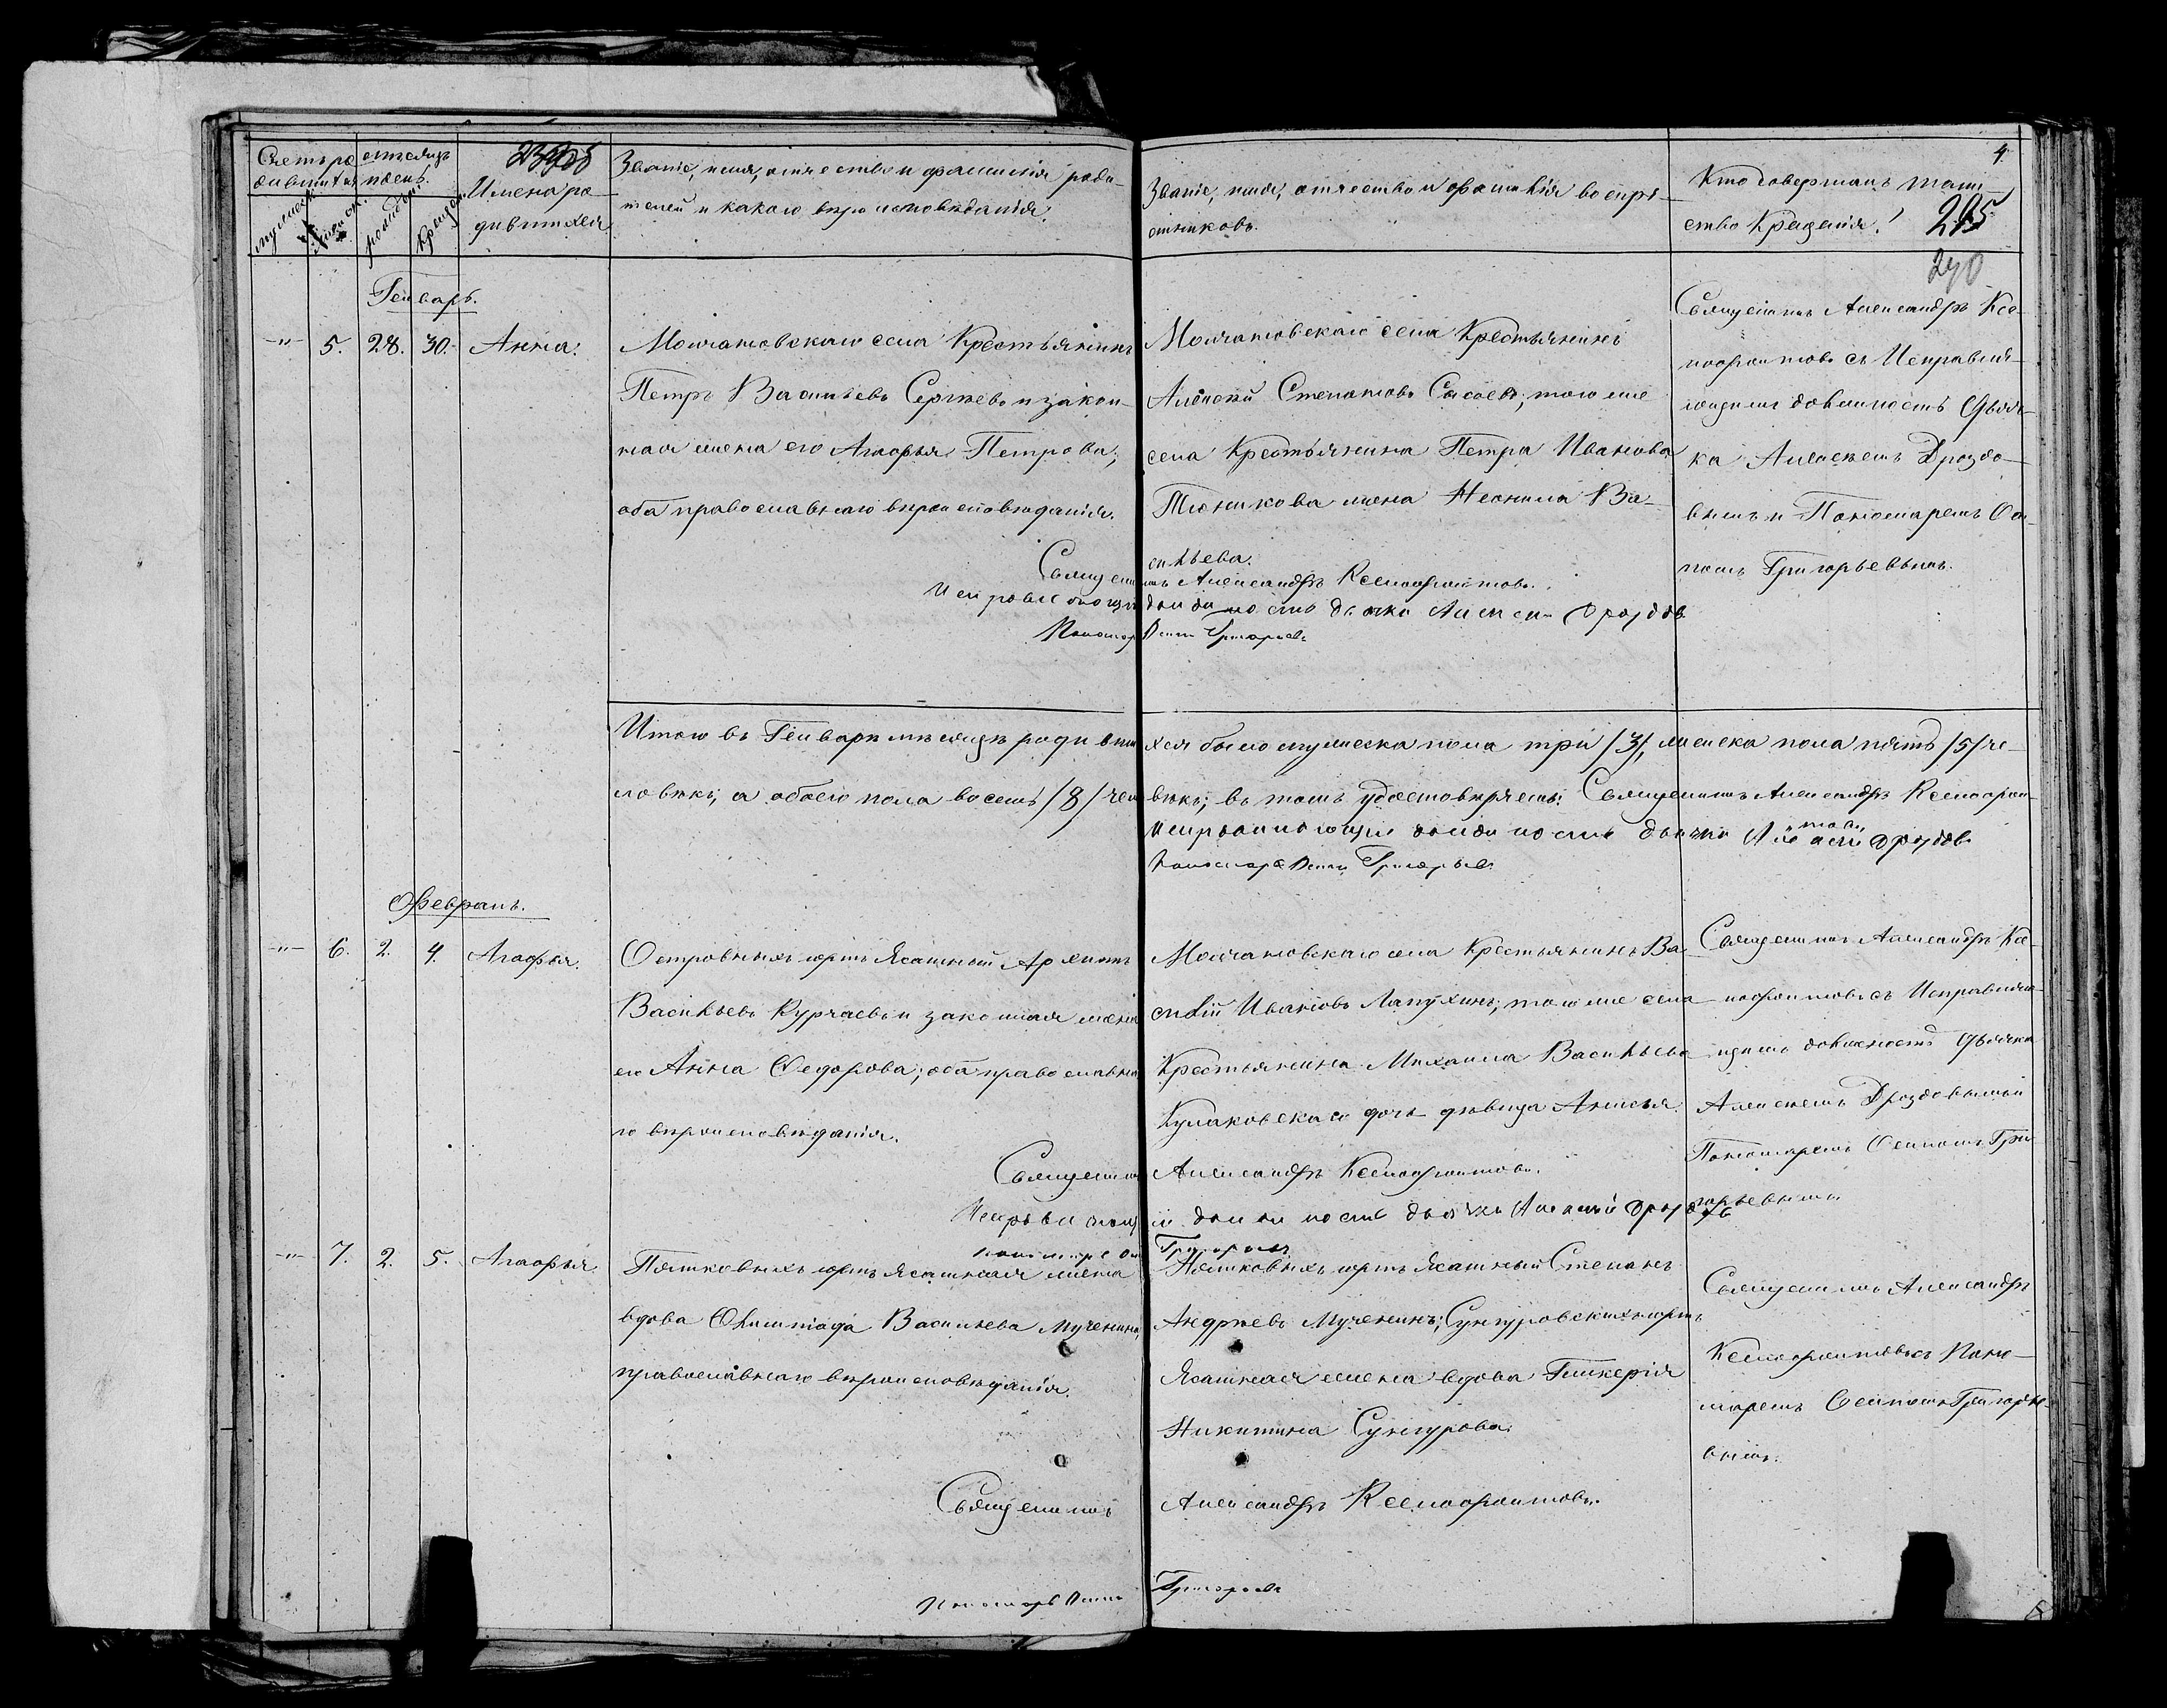 Счетъ ро-
дившихся
мѣсяцъ
и день.
Мужеска
Женска
рожденія
крещенія
Имена ро-
дившихся.
Званіе, имя, отчество и фамилія роди-
телей и какого вѣроисповѣданія.
Званіе, имя, отчество и фамилія воспрі-
емниковъ.
Кто совершалъ таин-
ство Крещенія?
4.
295
290
Генварь.
-"- 5. 28. 30. Анна.
Молчановскаго села Крестьянинъ
Петръ Васильевъ Сергѣевъ и закон-
ная жена его Агафья Петрова;
оба православнаго вѣроисповѣданія.
Молчановскаго села Крестьянинъ
Алексѣй Степановъ Сысоевъ; того же
села Крестьянина Петра Иванова
Тюникова жена Неонила Ва-
сильева.
Священникъ Александръ Ксе-
нофонтовъ съ Исправля-
ющимъ должность Дьяч-
ка Алексѣемъ Дроздо-
вымъ и Пономаремъ Оси-
помъ Григорьевымъ.
Священникъ Александръ Ксенофонтовъ.
Исправляющій должность дьячка Алексей Дроздовъ
Пономарь Осипъ Григорьевъ
Итого въ Генварѣ мѣсяцѣ родивши хся было мужеска пола три /3/, женска пола пять /5/ че-
ловѣкъ; а обоего пола восемь /8/ чело вѣкъ; въ томъ удостовѣряемъ: Священникъ Александръ Ксенофон-
товъ
Исправляющій должность дьячка Алексей Дроздовъ
Пономарь Осипъ Григорьевъ
Февраль.
-"- 6. 2. 4. Агафья.
Островныхъ юртъ Ясашный Архипъ
Васильевъ Курчаевъ и законная жена
его Анна Федорова; оба православна
го вѣроисповѣданія.
Молчановскаго села Крестьянинъ Ва-
силій Ивановъ Лапухинъ; того же села
Крестьянина Михаила Васильева
Кулаковскаго дочь дѣвица Анисья.
Священникъ Александръ Ксе-
нофонтовъ съ Исправляю-
щимъ должность Дьячка
Алексѣемъ Дроздовымъ и
Пономаремъ Осипомъ Гри-
горьевымъ.
Священникъ Александръ Ксенофонтовъ.
Исправляющій должность дьячка Алексей Дроздовъ
Пономарь Осипъ Григорьевъ
-"- 7. 2. 5. Агафья.
Пяшковыхъ юртъ Ясашная жена
вдова Олимпіада Васильева Мученина,
православнаго вѣроисповѣданія.
Пяшковыхъ юртъ Ясашный Степанъ
Андреевъ Мученинъ; Сунгуровскихъ юртъ
Ясашная жена вдова Гликерія
Никитина Сунгурова.
Священникъ Александръ
Ксенофонтовъ съ Поно-
маремъ Осипомъ Григорье-
вымъ.
Священникъ Александръ Ксенофонтовъ.
Пономарь Осипъ Григорьевъ